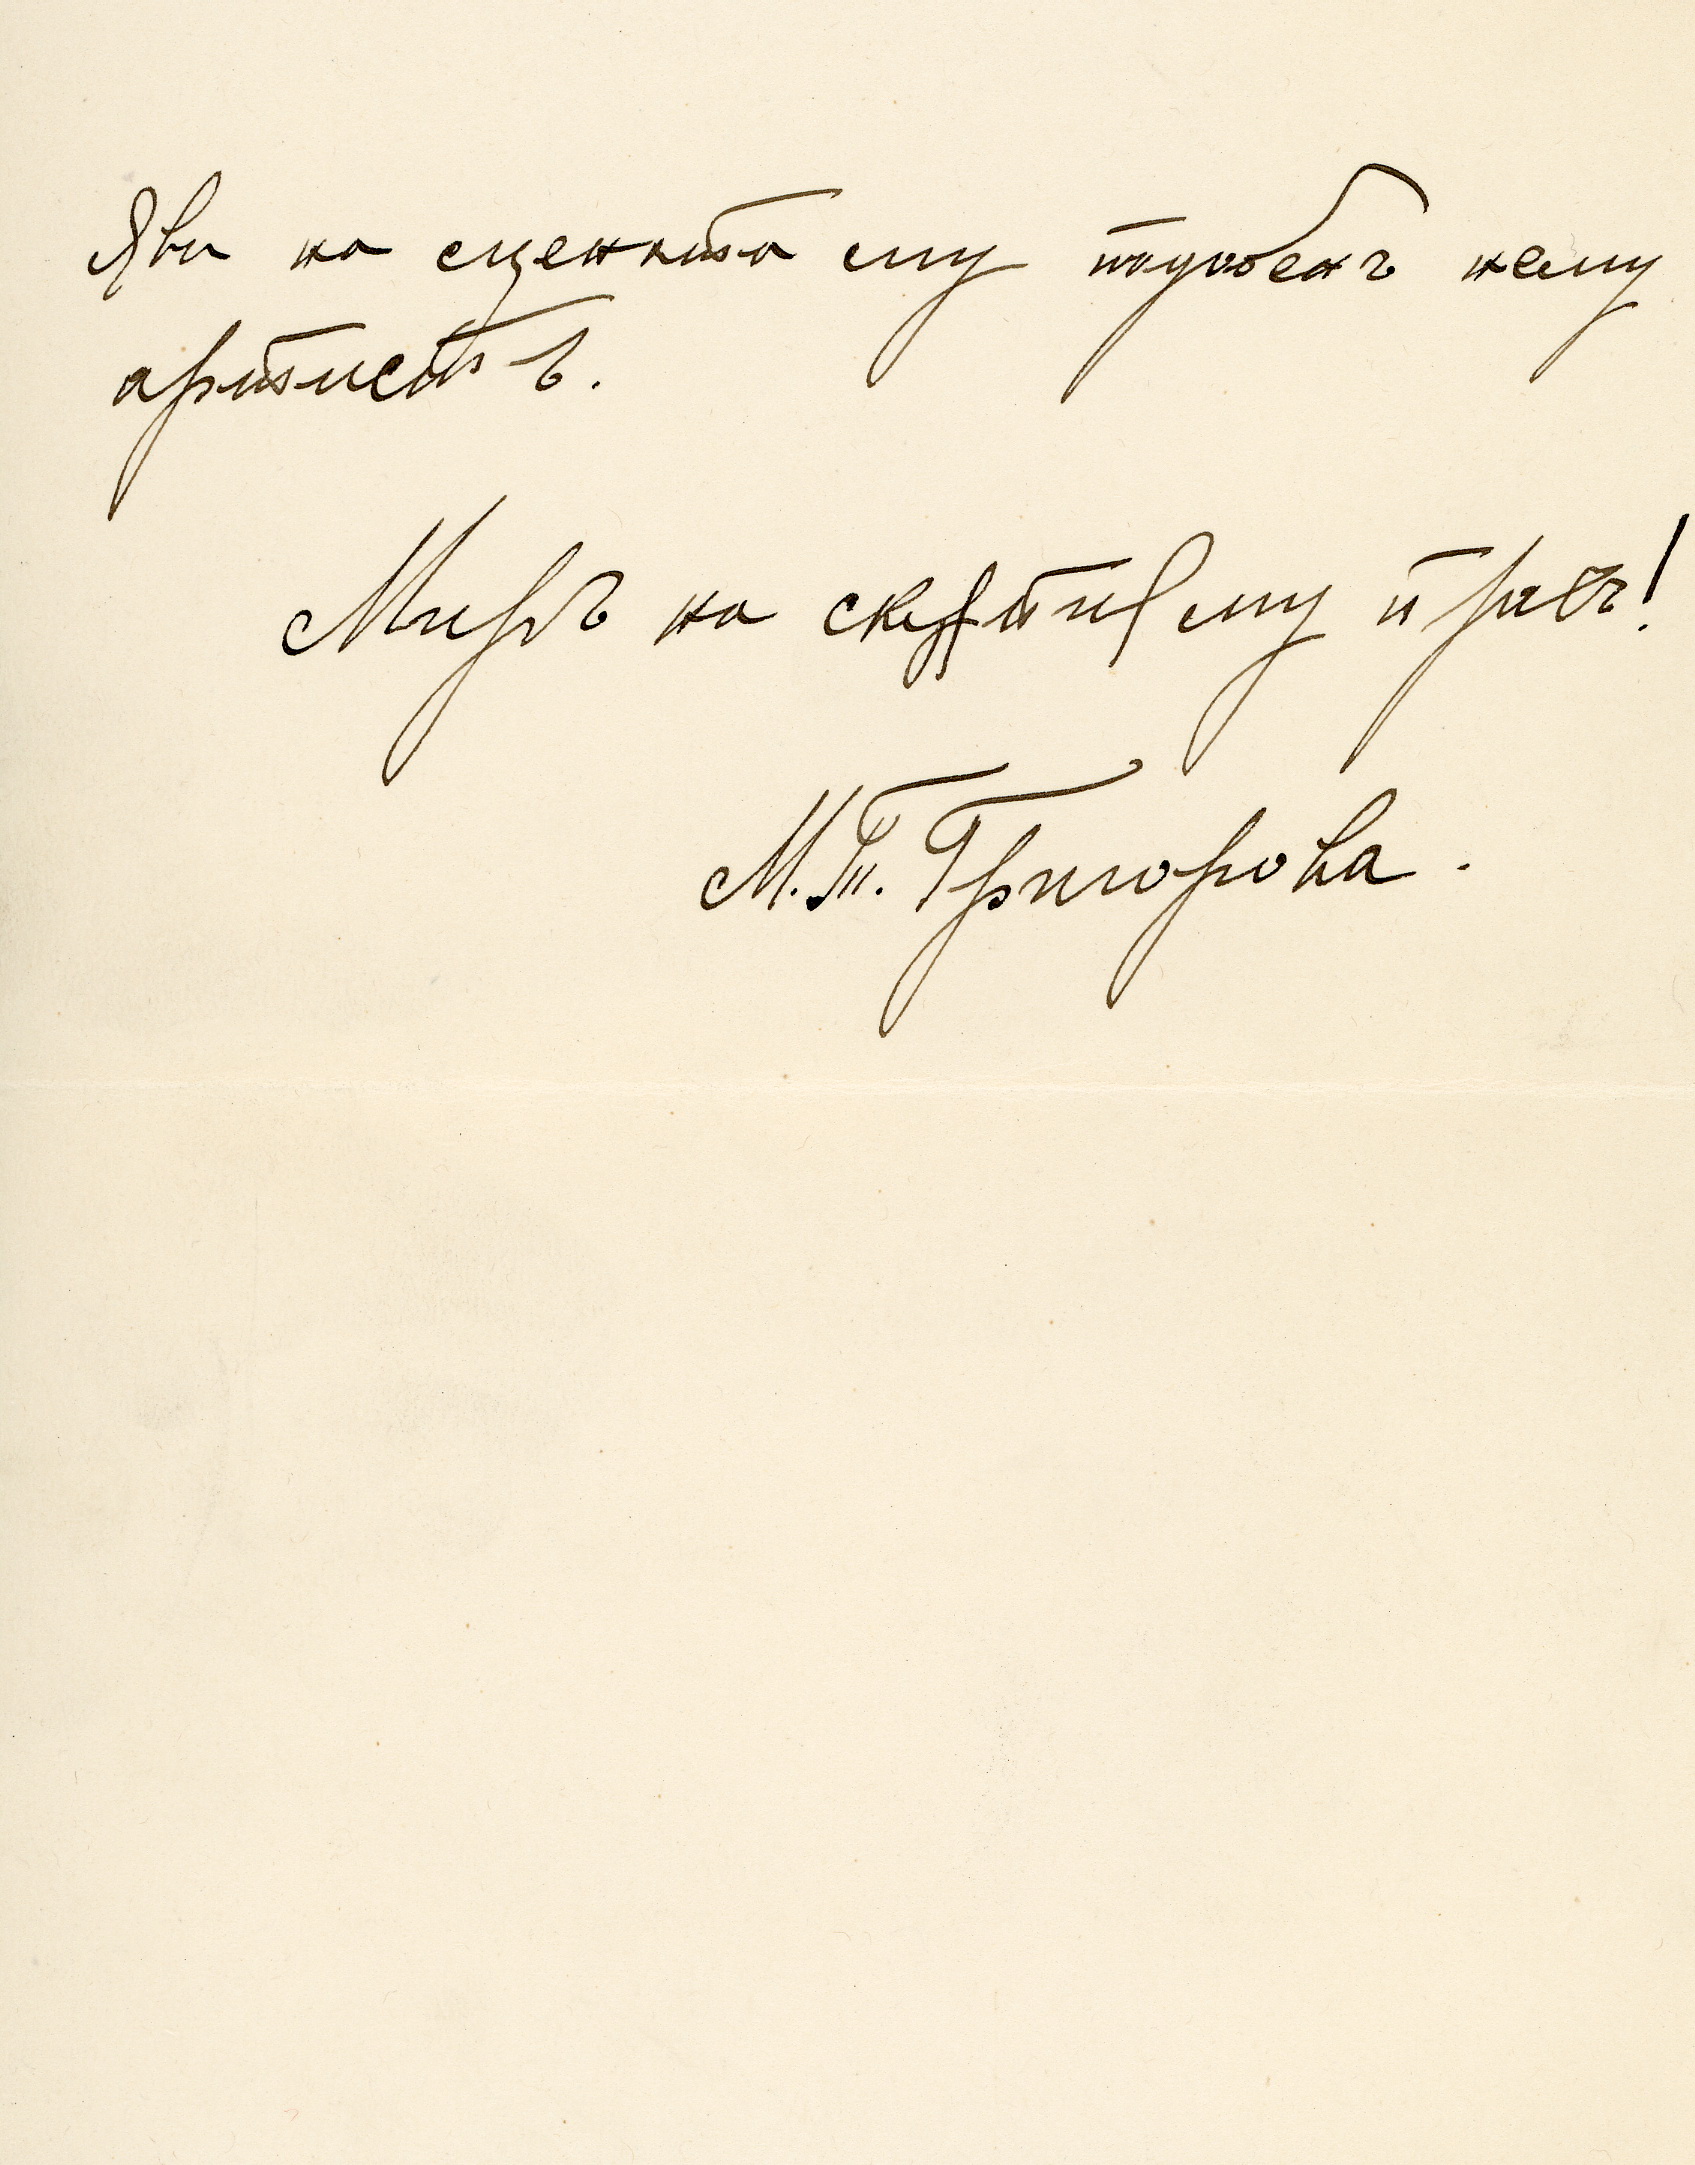 яви на сцената му подобенъ нему
артистъ.
Миръ на скѫпия му прахъ!
М. Т. Григорова.